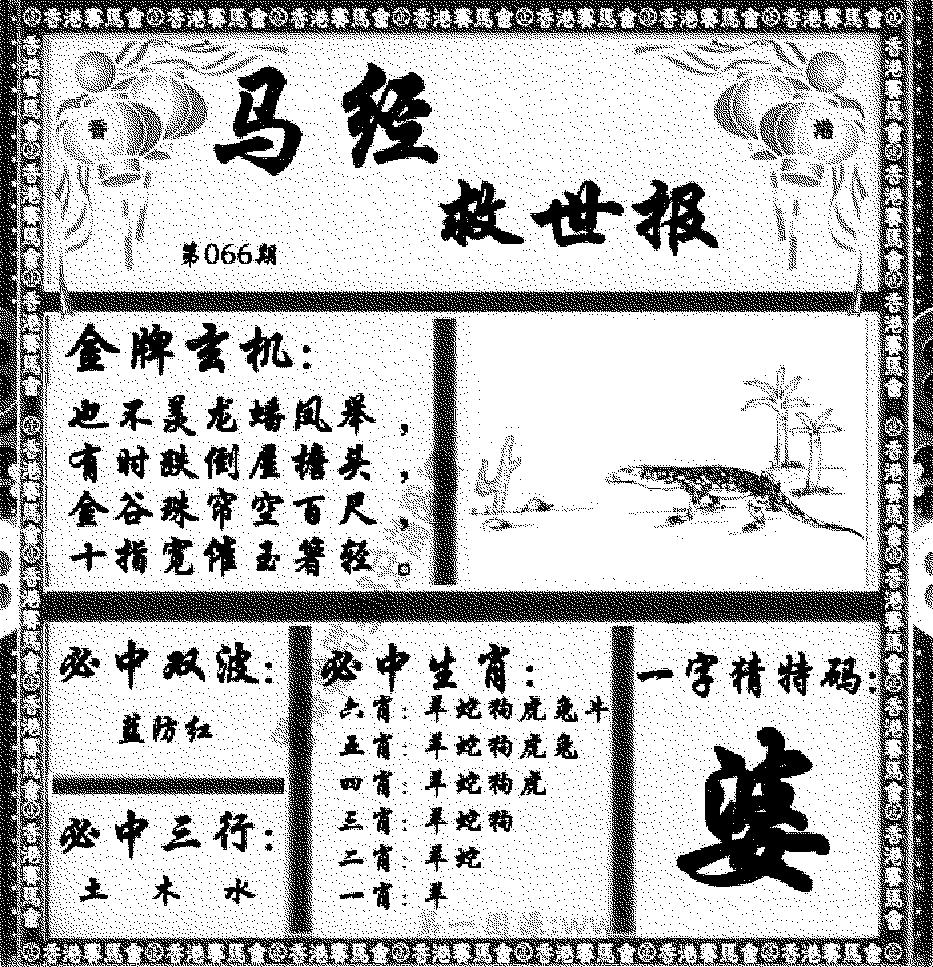 香港賽馬會 香港賽馬會 香港賽馬會 香港賽馬會 香港賽馬會 香港賽馬會 香港賽馬會
香
港
马经
救世报
第066期
金牌玄机:
也不羡龙蟠凤举,
有时跌倒屋檐头,
金谷珠帘空百尺,
十指宽催玉箸轻。
必中双波:
蓝防红
必中三行:
土 木 水
必中生肖:
六肖: 羊蛇狗虎兔牛
五肖: 羊蛇狗虎兔
四肖: 羊蛇狗虎
三肖: 羊蛇狗
二肖: 羊蛇
一肖: 羊
一字猜特码:
婆
香港賽馬會 香港賽馬會 香港賽馬會 香港賽馬會 香港賽馬會 香港賽馬會 香港賽馬會